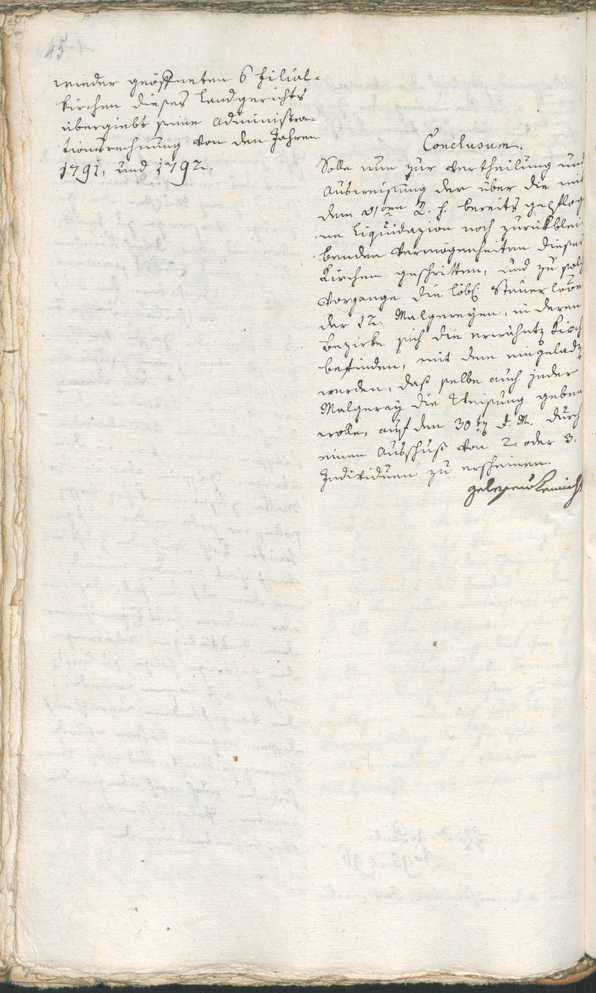 45
wieder geöffneten 6 Filial-
kirchen dieses Landgerichts
übergiebt seine Administra-
tionsrechnung von den Jahren
1791, und 1792.
Conclusum.
Solle nun zur Vertheilung und
Ausweisung der über die mit
dem bereits gepflog
ne Liquidazion noch zurükblei
benden Vermögenheiten dieser
Kirchen geschritten, und zu solch
Vorgange die löbl. Steuer
der 12 Malgereyen, in deren
Bezirke sich die erwähnte Kirch
befinden, mit dem eingeladen
werden, daß selbe auch jeder
Malgerey die Weisung geben
wolle, auf den 30ten d. M. durch
einen Ausschuß von 2. oder 3.
Individuen zu erscheinen.